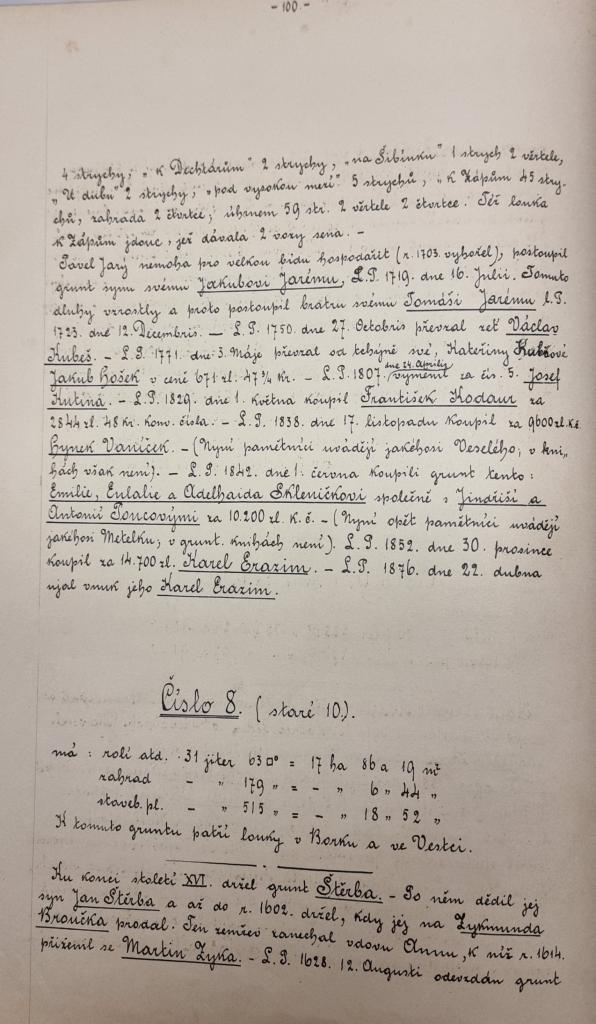 - 100. -
4 strychy, „k Dechtárům" 2 strychy, „na Šibínku" 1 strych 2 věrtele,
„U dubu" 2 strychy, „pod vysokou mezí" 5 strychů, „k Zápům 45 stry-
chů, zahrada 2 čtvrtce, úhrnem 59 str. 2 věrtele 2 čtvrtce. Též louka
k Zápům jdouc, jež dávala 2 vozy sena. -
Pavel Jarý nemoha pro velkou bídu hospodařit (r. 1703. vyhořel), postoupil
grunt synu svému Jakubovi Jarému, L.P. 1719. dne 16. Julii. Tomuto
dluhy vzrostly a proto postoupil bratru svému Tomáši Jarému l.P.
1723. dne 12. Decembris. - L.P. 1750. dne 27. Octobris převzal zeť Václav
Kubeš. - L.P. 1771. dne 3. Máje převzal od tchýně své, Kateřiny Kubšové
Jakub Hošek v ceně 671 zl. 47¾ kr. - L.P. 1807. dne 24. Aprilis vyměnil za čís. 5. Josef
Kutina. - L.P. 1829. dne 1. května koupil František Kodaur za
2844 zl. 48 kr. konv. čísla. - L.P. 1838. dne 17. listopadu koupil za 9600 zl. k.č.
Hynek Vaníček. - (Nyní pamětníci uvádějí jakéhosi Veselého; v kni-
hách však není). - L.P. 1842. dne 1. června koupili grunt tento:
Emilie, Eulalie a Adelhaida Skleničkovi společně s Jindřiší a
Antonií Poncovými za 10.200 zl. k.č. - (Nyní opět pamětníci uvádějí
jakéhosi Metelku; v grunt. knihách není). L.P. 1852. dne 30. prosince
koupil za 14.700 zl. Karel Erazim. - L.P. 1876. dne 22. dubna
ujal vnuk jeho Karel Erazim.
Číslo 8. (staré 10.).
má: rolí atd. 31 jiter 63□° = 17 ha 86 a 19 m²
zahrad - „ 179 „ = - „ 6 „ 44 „
staveb. pl. - „ 515 „ = - „ 18 „ 52 „
K tomuto gruntu patří louky v Borku a ve Vestci.
Ku konci století XVI. držel grunt Štěrba. - Po něm dědil jej
syn Jan Štěrba a až do r. 1602. držel, kdy jej na Zykmunda
Broučka prodal. Ten zemřev zanechal vdovu Annu, k níž r. 1614.
přiženil se Martin Zyka. - L.P. 1628. 12. Augusti odevzdán grunt